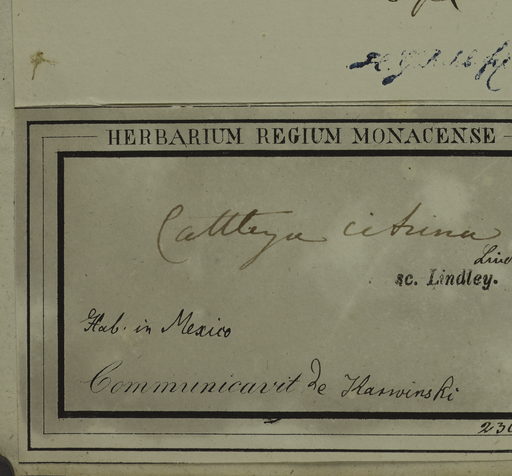 HERBARIUM REGIUM MONACENSE
Cattleya citrina
Lind
sc. Lindley.
Hab. in Mexico
Communicavit de Karwinski
230